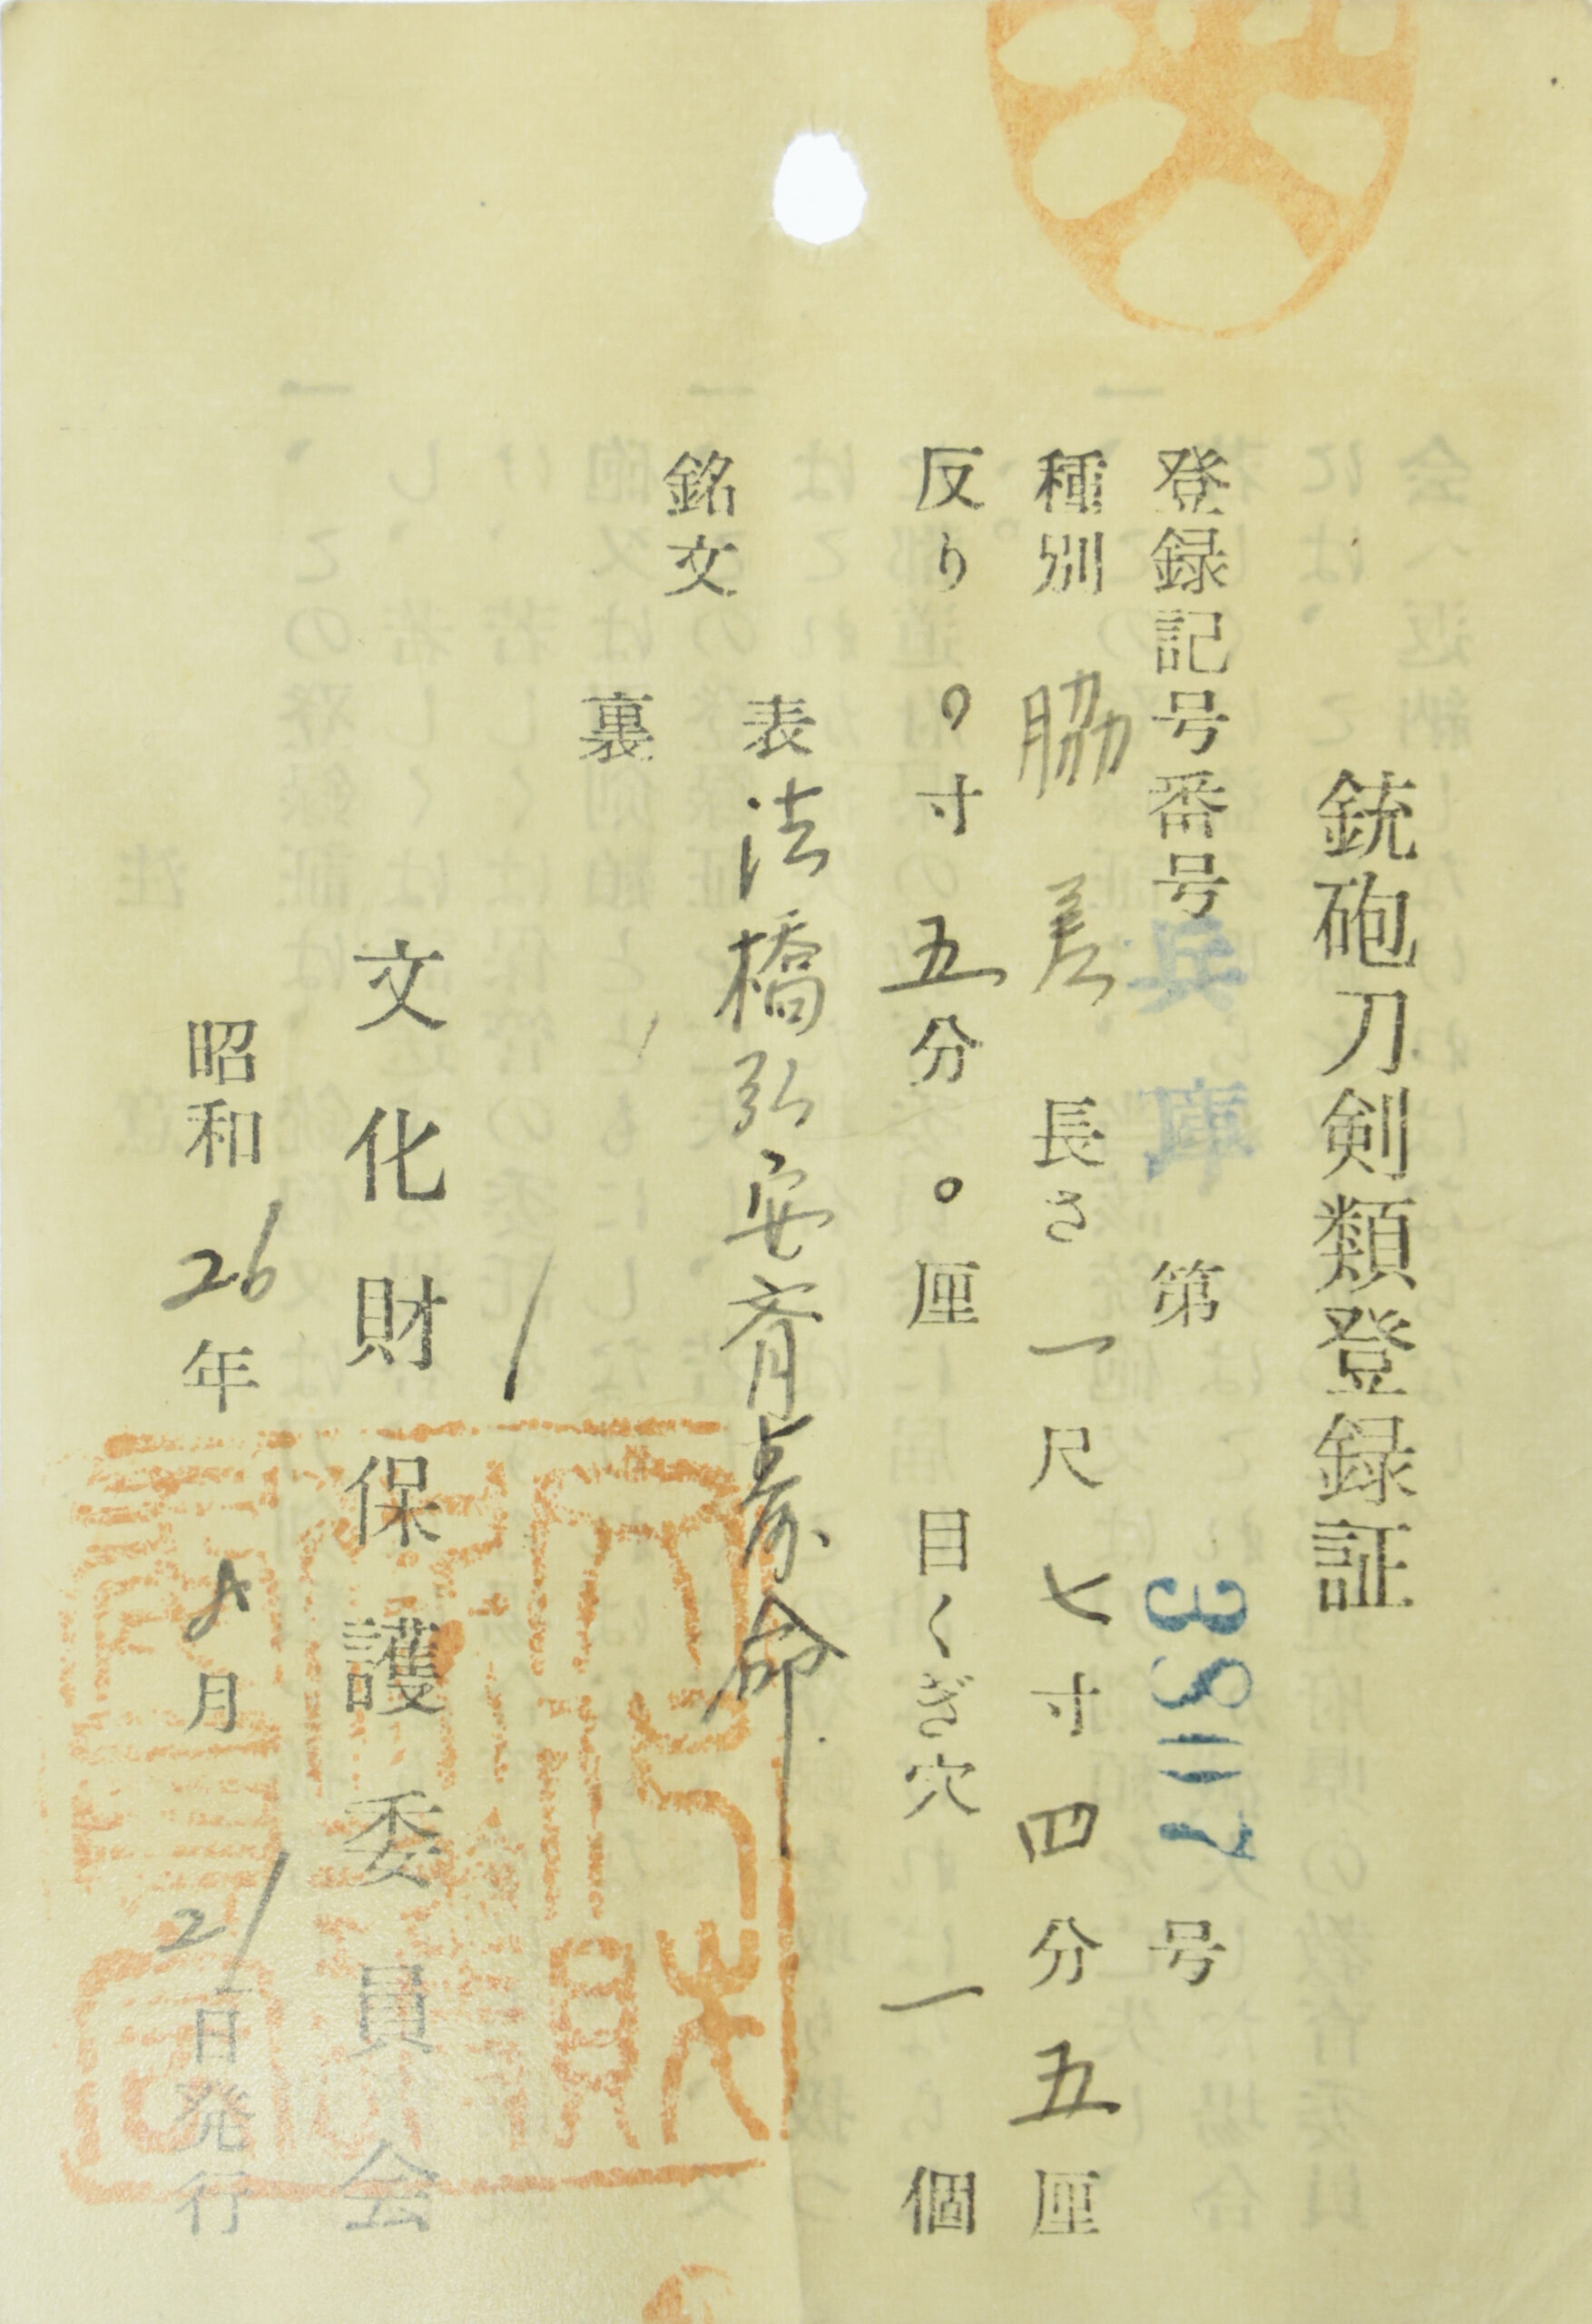 銃砲刀剣類登録証
登録記号番号 兵庫 第 38117 号
種別 脇差 長さ 一尺七寸四分五厘
反り 〇寸五分〇厘 目くぎ穴 一個
銘文
表 法橋弘安斉寿命
裏
文化財保護委員会
昭和26年 月21日発行